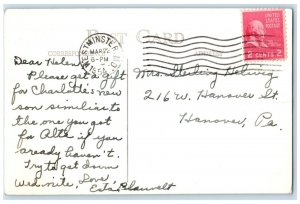 POST CARD
CORRESPONDENCE
ADDRESS
WESTMINSTER
MAR 22
6-PM
UNITED STATES
POSTAGE
2 CENTS 2
Dear Helen
Please get a gift
for Charlotte's new
son similiar to
the one you got
for Alta if you
aready haven't.
Try to get down
Wed. nite. Love
Blauvelt
Mrs. Sterling Helwig
216 W. Hanover St.
Hanover, Pa.